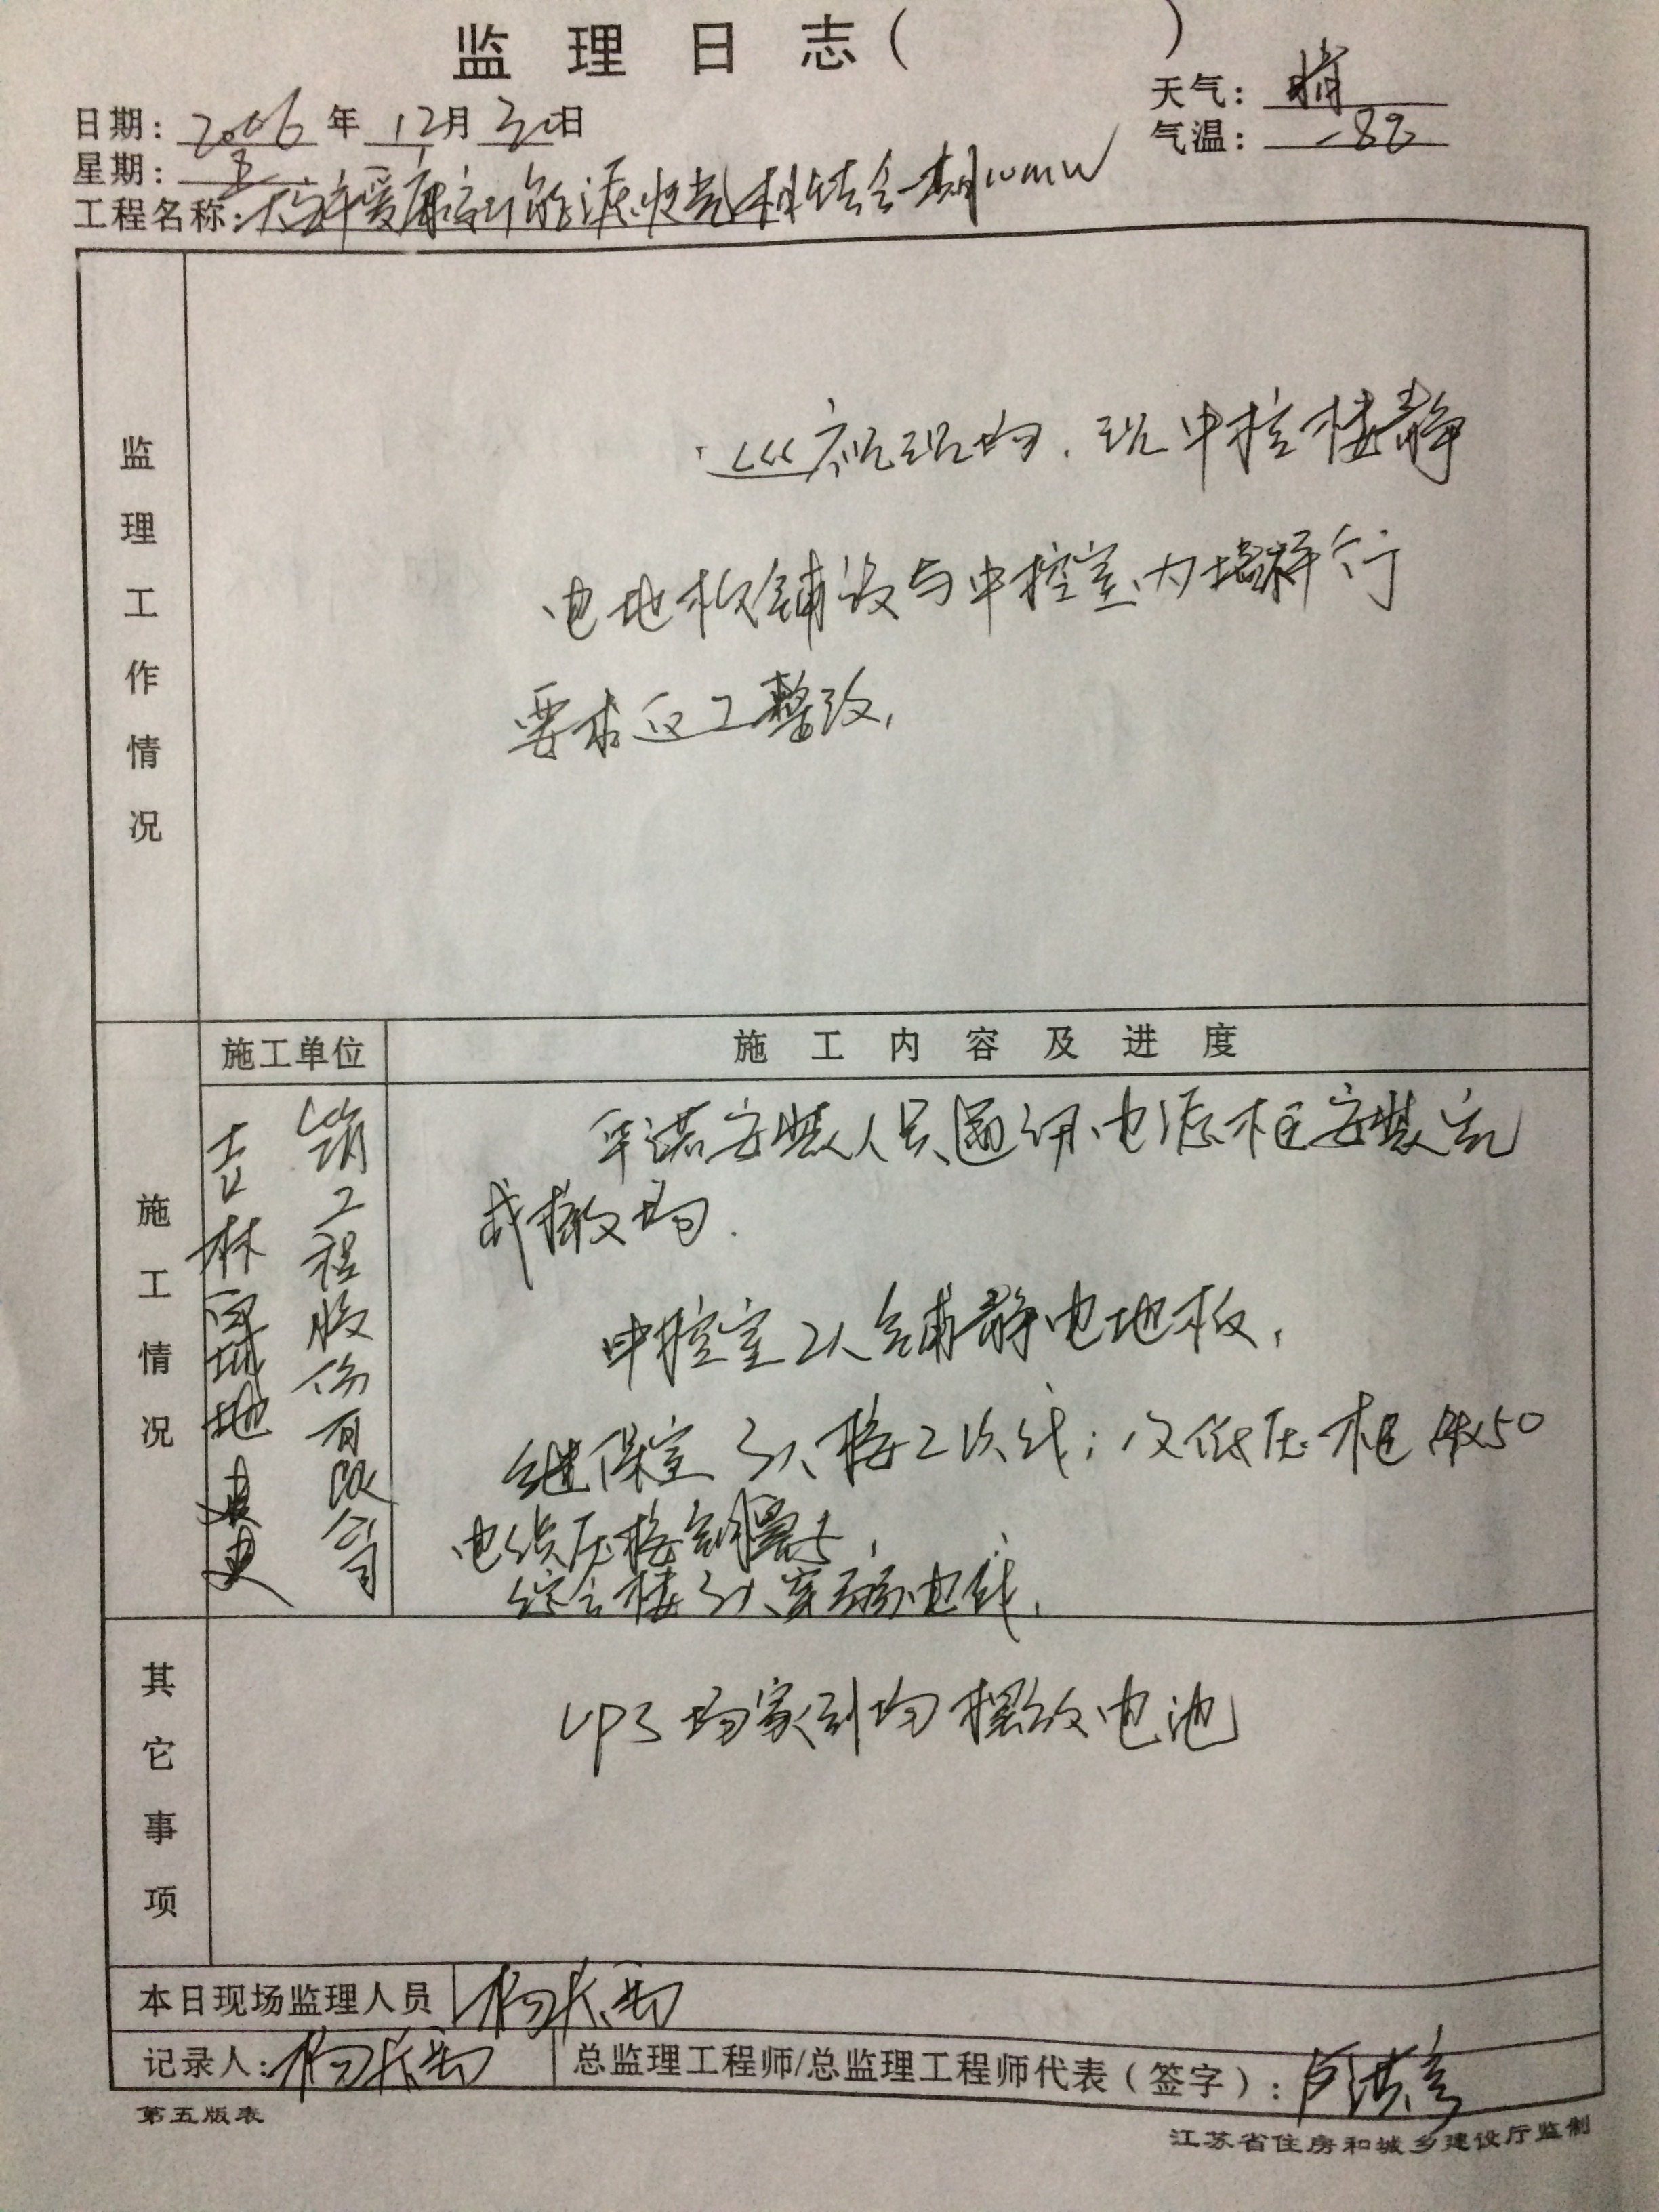 监理日志（ ）
天气：晴
日期：2006年12月30日
气温：-8℃
星期：五
工程名称：大安爱康新能源牧光相结合一期10MW
监理工作情况
巡视现场，现中控楼静
电地板铺设与中控室内墙
要求返工整改，
施工情况
施工单位
施工内容及进度
吉林 地建
筑工程股份有限公司
安装人员通讯电源柜安装完
成撤场.
中控室2人铺静电地板，
继保室3人接2次线；低压柜 50
电缆压接铜鼻子，
综合楼3人穿 电线，
其它事项
UPS场家到场摆放电池
本日现场监理人员
记录人：
总监理工程师/总监理工程师代表（签字）：
第五版表
江苏省住房和城乡建设厅监制